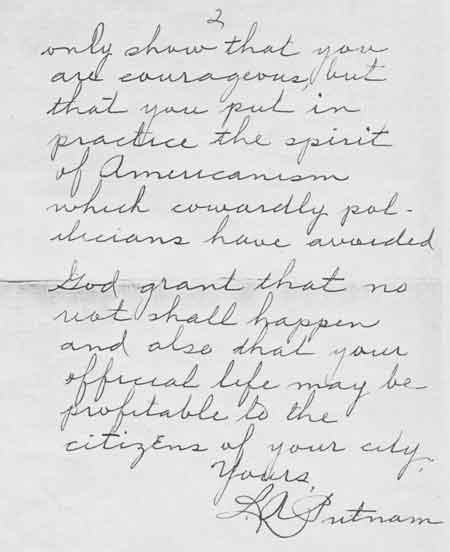 2
only show that you
are courageous, but
that you put in
practice the spirit
of Americanism
which cowardly pol-
iticians have avoided
God grant that no
riot shall happen
and also that your
official life may be
profitable to the
citizens of your city.
Yours,
L A Putnam